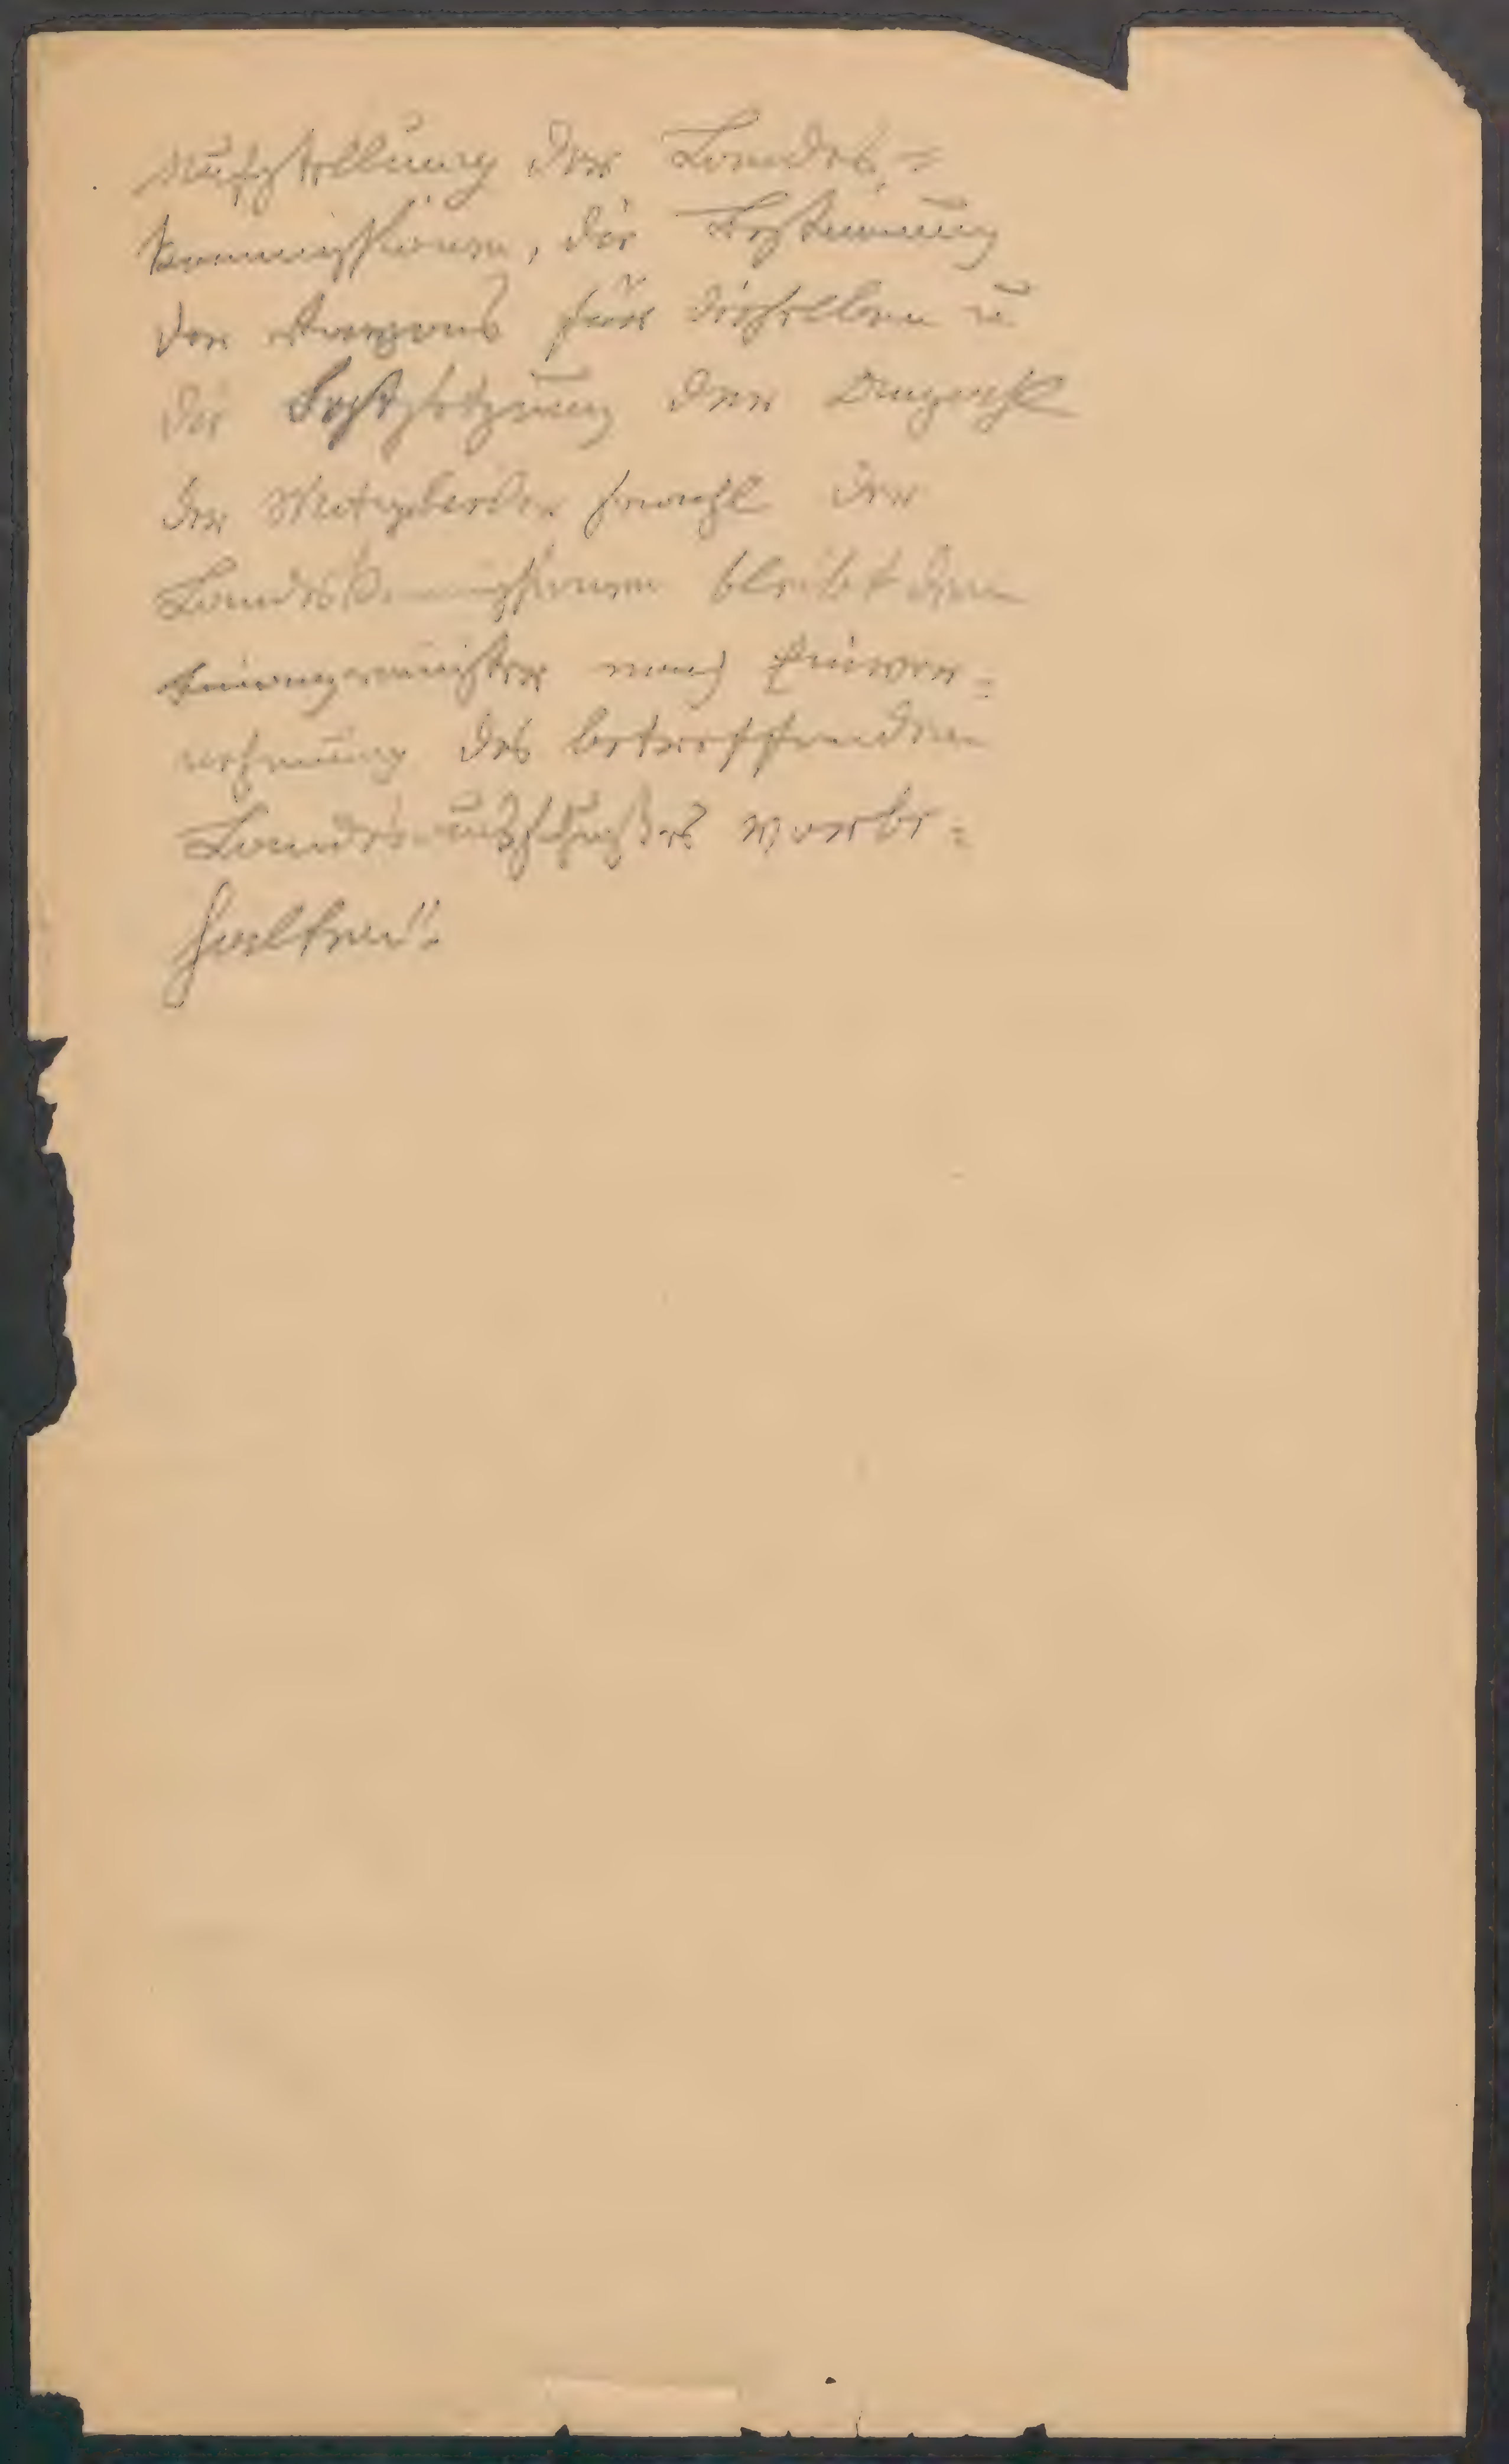 Aufstellung der Landes=
kommissionen, die Bestimmung
der Rayons für dieselben u
die Festsetzung der Anzahl
der Mitglieder sowohl der
Landeskommissionen bleibt dem
Finanzminister nach Einver=
nehmung des betreffenden
Landesausschußes vorbe=
halten".